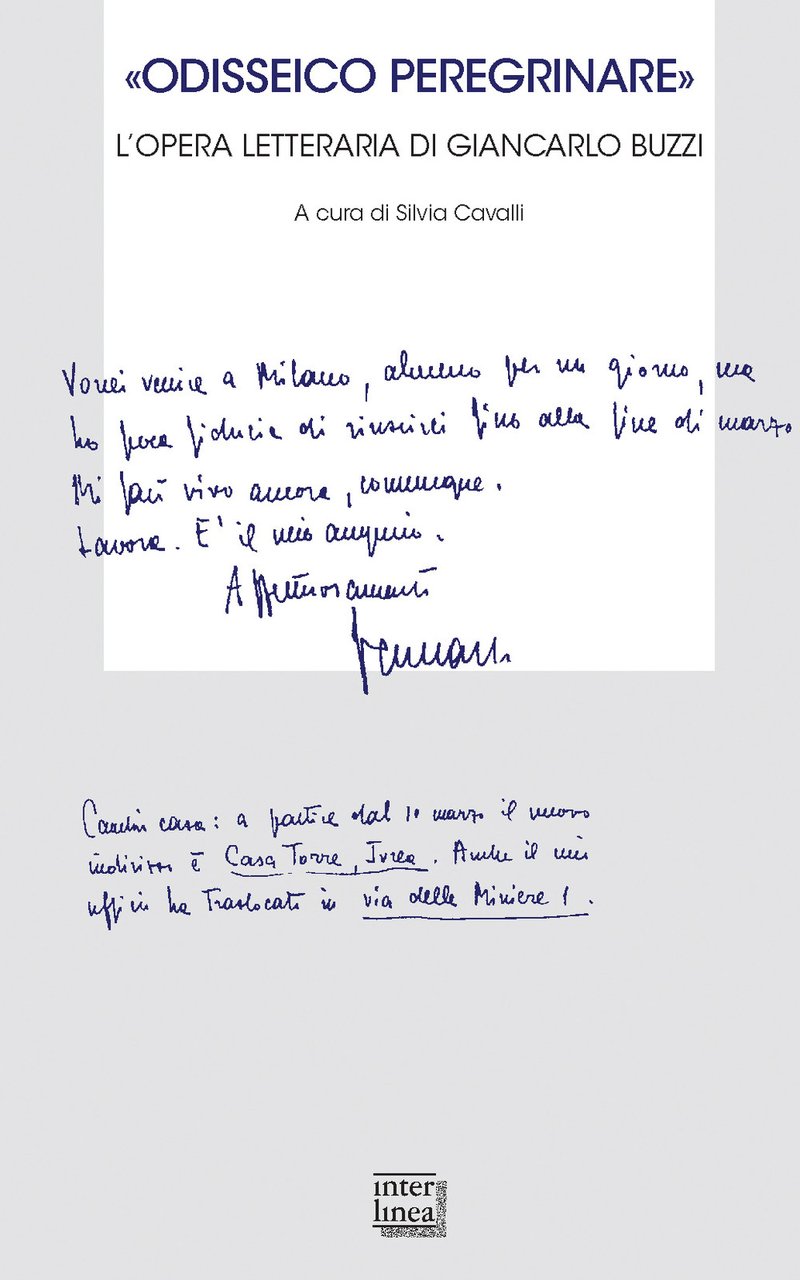 «ODISSEICO PEREGRINARE»
L'OPERA LETTERARIA DI GIANCARLO BUZZI
A cura di Silvia Cavalli
Vorrei venire a Milano, almeno per un giorno, ma
ho poca fiducia di riuscirci fino alla fine di marzo.
Mi farò vivo ancora, comunque.
Lavora. E' il mio augurio.
Affettuosamente
Cambio casa: a partire dal 1° marzo il nuovo
indirizzo è Casa Torre, Ivrea. Anche il mio
ufficio ha traslocato in via delle Miniere 1.
inter
linea